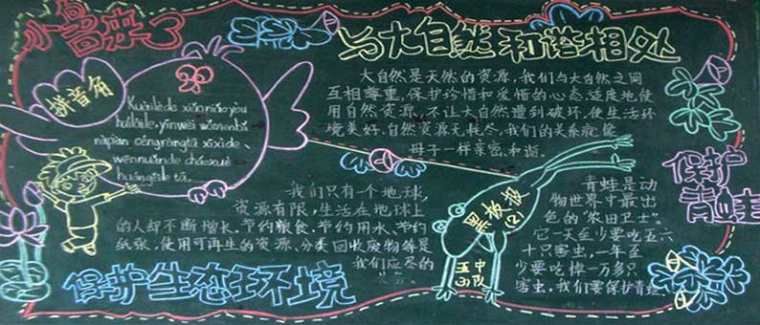 小鸟来了
与大自然和谐相处
拼音角
Kuàilède xiǎoniǎo yòu
huílaile, yīnwèi wǒmen bǎ
nàpiàn
wēnnuǎnde cháoxué
huángěile tā.
大自然是天然的资源,我们与大自然之间
互相尊重,保护珍惜和爱惜的心态适度地使
用自然资源,不让大自然遭到破坏,使生活环
境美好,自然资源无耗尽,我们的关系就像
母子一样亲密、和谐。
保护
青蛙
我们只有一个地球,
资源有限,生活在地球上
的人却不断增长。节约粮食、节约用水、节约
纸张、使用可再生的资源、分类回收废物等是
我们应尽的
黑板报
(2)
五中
小队
青蛙是动
物世界中最出
色的“农田卫士”。
它一天至少要吃五六
十只害虫,一年至
少要吃掉一万多只
害虫,我们要保护青蛙
保护生态环境